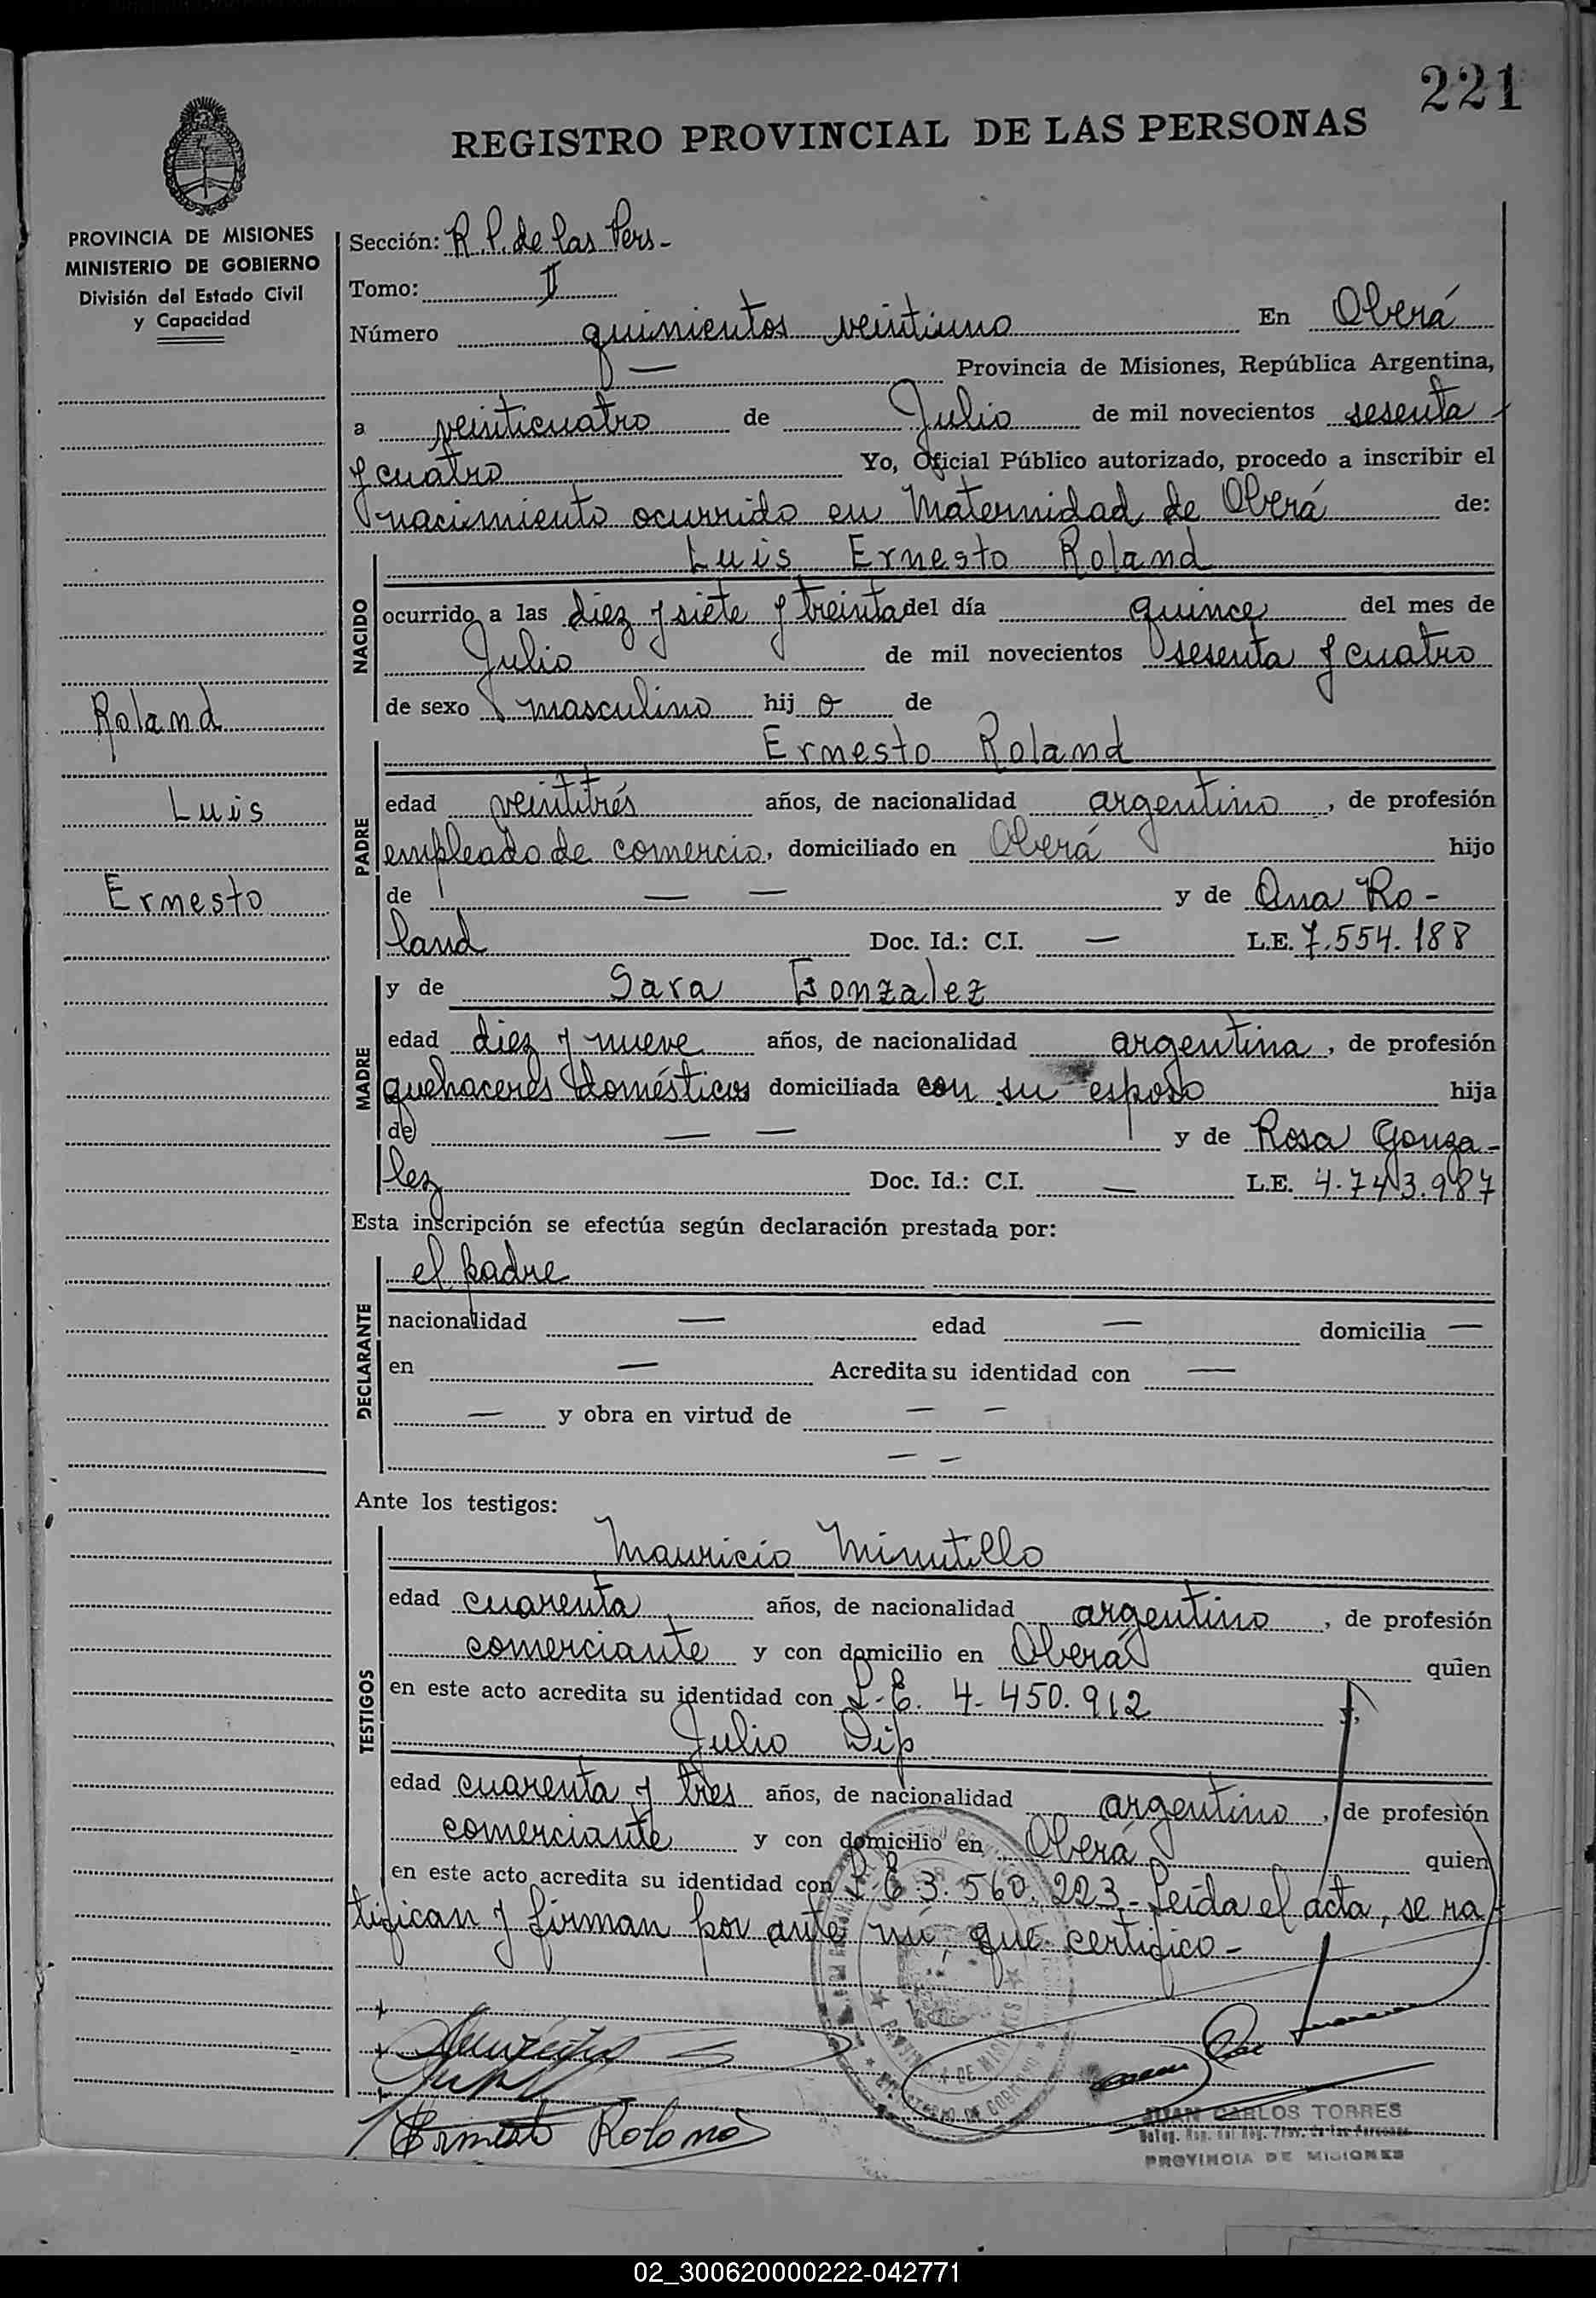 221
REGISTRO PROVINCIAL DE LAS PERSONAS
PROVINCIA DE MISIONES
MINISTERIO DE GOBIERNO
División del Estado Civil
y Capacidad
Roland
Luis
Ernesto
Sección: R.P. de las Pers-
Tomo: II
Número quinientos veintiuno En Oberá
— Provincia de Misiones, República Argentina,
a veinticuatro de Julio de mil novecientos sesenta
y cuatro Yo, Oficial Público autorizado, procedo a inscribir el
nacimiento ocurrido en Maternidad de Oberá de:
NACIDO
Luis Ernesto Roland
ocurrido a las diez y siete y treinta del día quince del mes de
Julio de mil novecientos sesenta y cuatro
de sexo masculino hij o de
PADRE
Ernesto Roland
edad veintitrés años, de nacionalidad argentino, de profesión
empleado de comercio, domiciliado en Oberá hijo
de — — y de Ana Ro-
land Doc. Id.: C.I. — L.E. 7.554.188
MADRE
y de Sara Gonzalez
edad diez y nueve años, de nacionalidad argentina, de profesión
quehaceres domésticos domiciliada con su esposo hija
de — — y de Rosa Gonza-
lez Doc. Id.: C.I. — L.E. 4.743.987
Esta inscripción se efectúa según declaración prestada por:
DECLARANTE
el padre
nacionalidad — edad — domicilia —
en — Acredita su identidad con —
— y obra en virtud de — —
— —
Ante los testigos:
TESTIGOS
Mauricio Minutillo
edad cuarenta años, de nacionalidad argentino, de profesión
comerciante y con domicilio en Oberá quien
en este acto acredita su identidad con L.E. 4.450.912 y,
Julio Dip
edad cuarenta y tres años, de nacionalidad argentino, de profesión
comerciante y con domicilio en Oberá quien
en este acto acredita su identidad con L.E 3.560.223- Leída el acta, se ra-
tifican y firman por ante mí, que certifico-
Ernesto Roland
JUAN CARLOS TORRES
PROVINCIA DE MISIONES
02_300620000222-042771